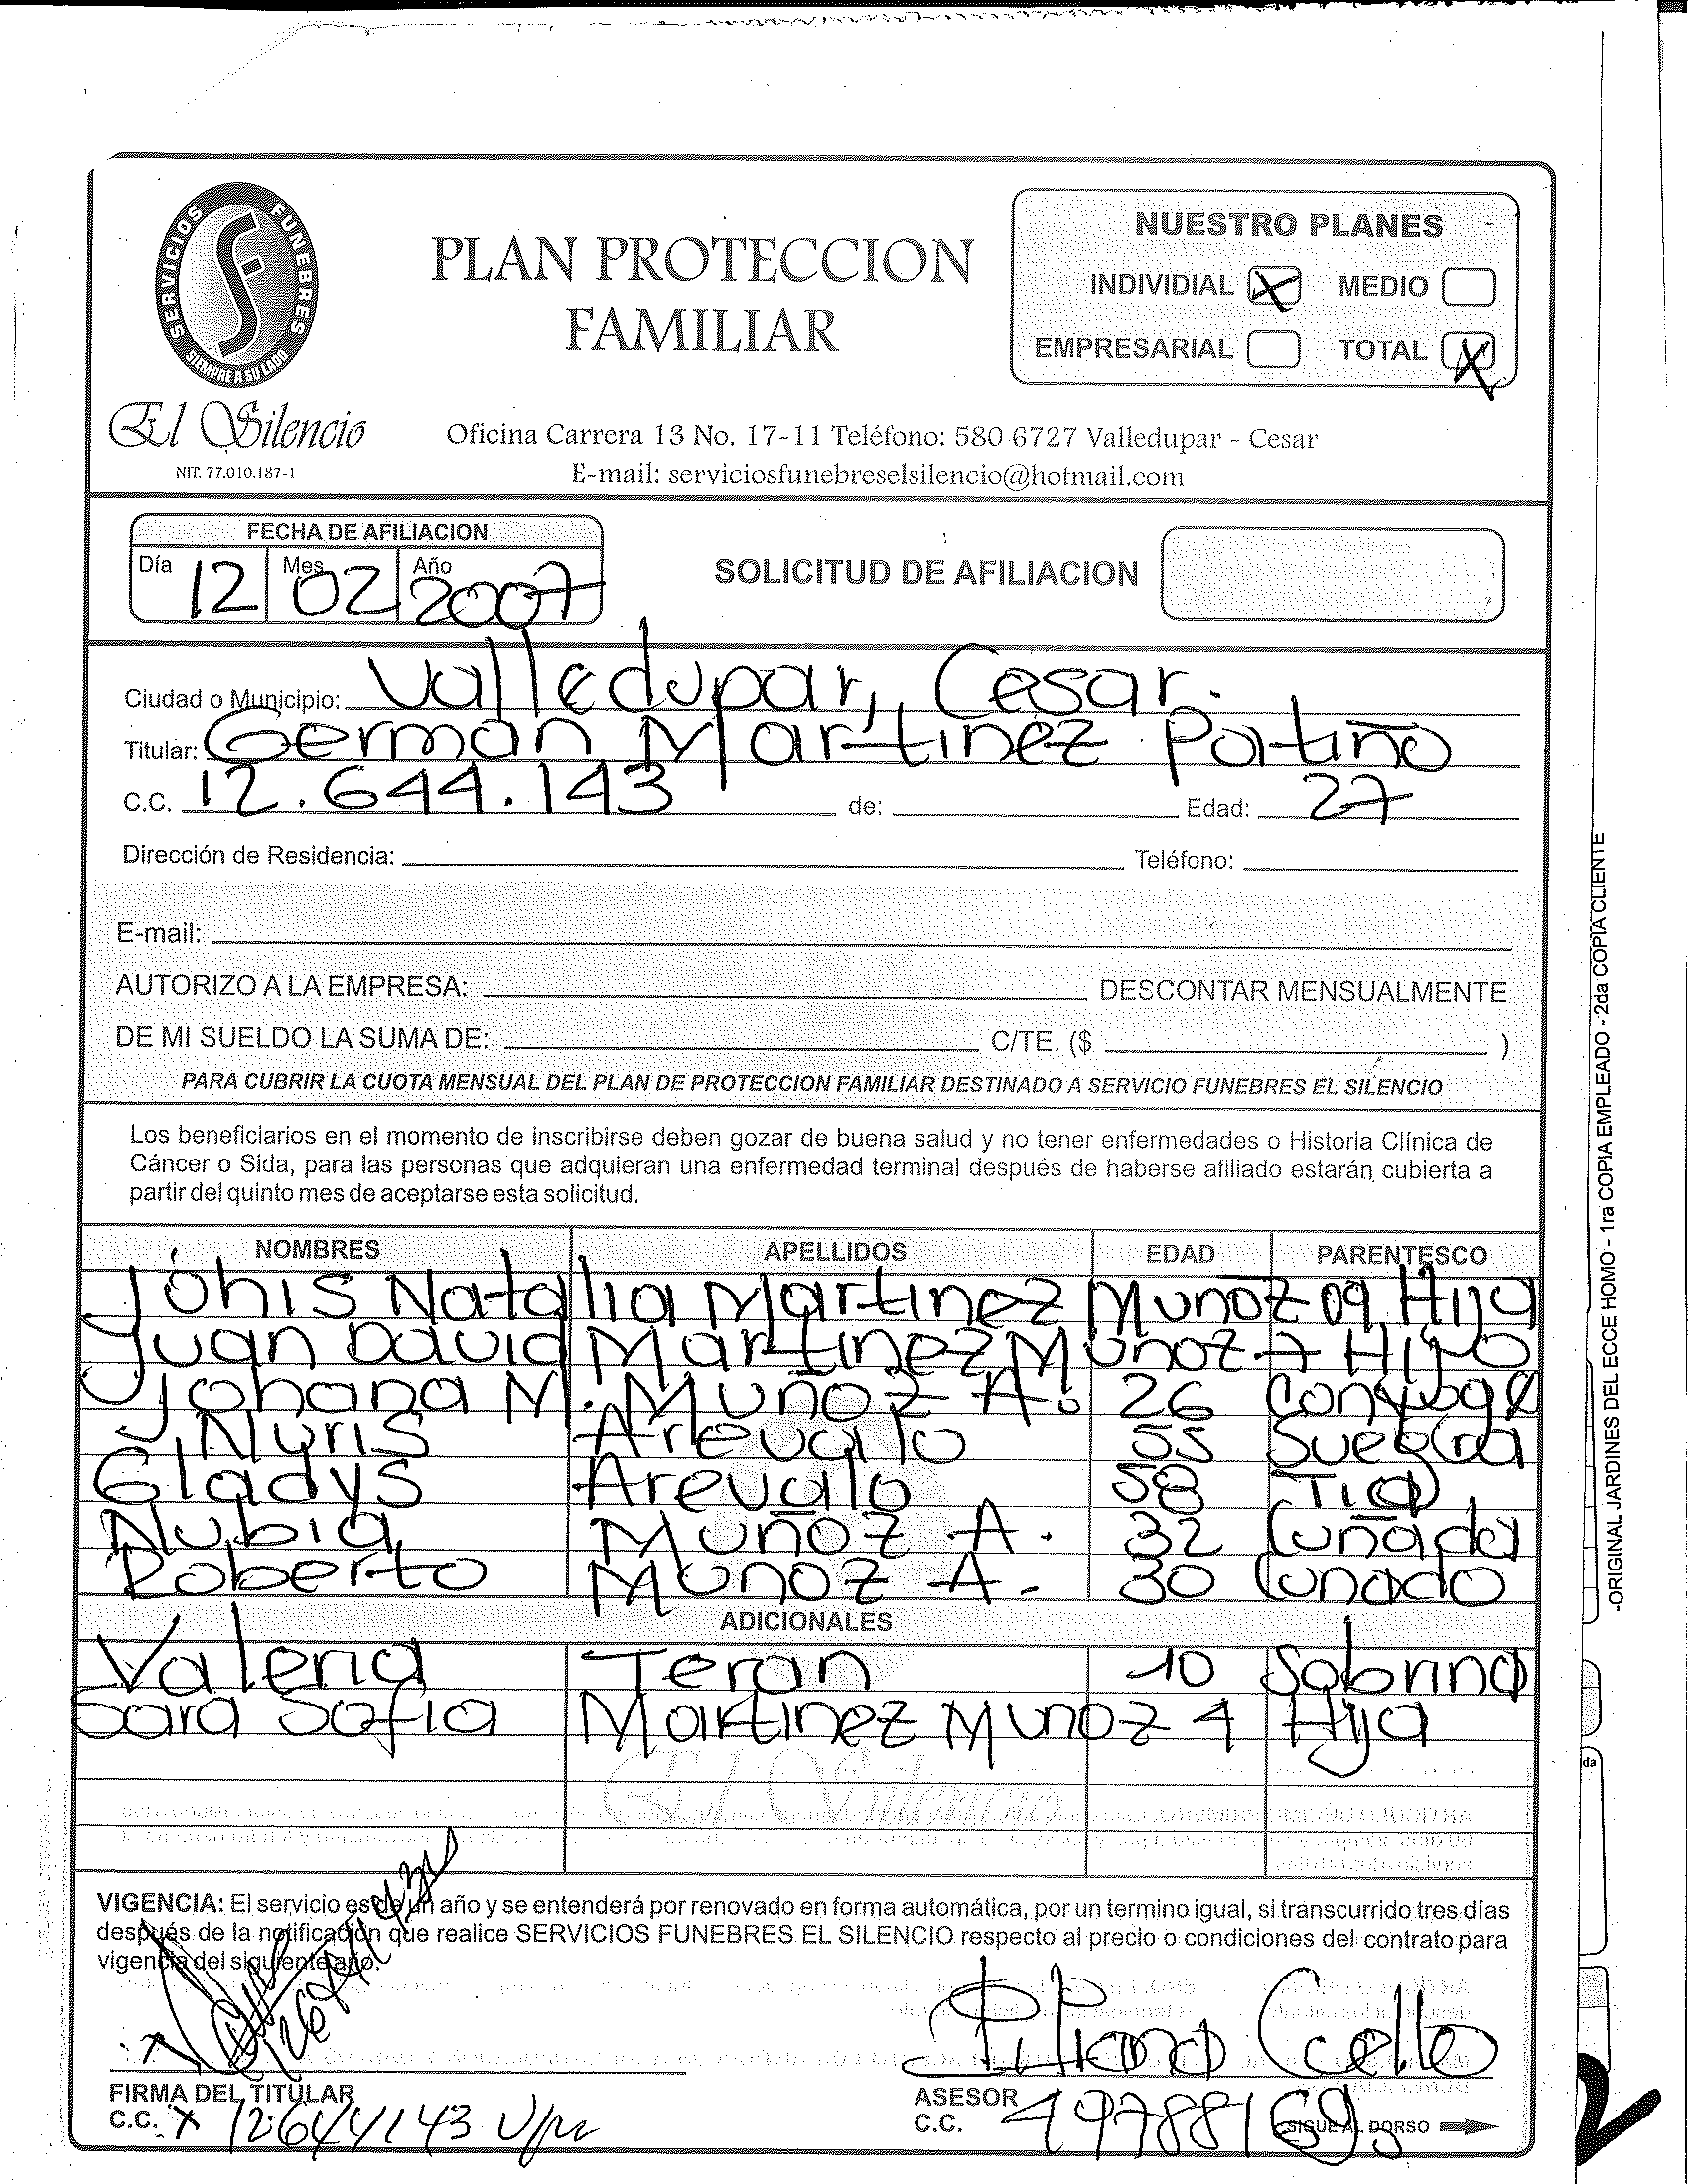 SERVICIOS FUNEBRES
SIEMPRE A SU LADO
El Silencio
NIT. 77.010.187-1
PLAN PROTECCION
FAMILIAR
NUESTRO PLANES
INDIVIDIAL X MEDIO
EMPRESARIAL TOTAL X
Oficina Carrera 13 No. 17-11 Teléfono: 580 6727 Valledupar - Cesar
E-mail: serviciosfunebreselsilencio@hotmail.com
FECHA DE AFILIACION
Día 12 Mes 02 Año 2007
SOLICITUD DE AFILIACION
Ciudad o Municipio: Valledupar, Cesar.
Titular: German Martinez Patiño
C.C. 12.644.143 de: Edad: 27
Dirección de Residencia: Teléfono:
E-mail:
AUTORIZO A LA EMPRESA: DESCONTAR MENSUALMENTE
DE MI SUELDO LA SUMA DE: C/TE. ($ )
PARA CUBRIR LA CUOTA MENSUAL DEL PLAN DE PROTECCION FAMILIAR DESTINADO A SERVICIO FUNEBRES EL SILENCIO
Los beneficiarios en el momento de inscribirse deben gozar de buena salud y no tener enfermedades o Historia Clínica de
Cáncer o Sida, para las personas que adquieran una enfermedad terminal después de haberse afiliado estarán cubierta a
partir del quinto mes de aceptarse esta solicitud.
NOMBRES APELLIDOS EDAD PARENTESCO
Johis Natalia Martinez Munoz 09 Hija
Juan David Martinez Munoz 7 Hijo
Johana M. Muñoz A. 26 Conyuge
Nuris Arevalo 55 Suegra
Gladys Arevalo 58 Tia
Nubia Muñoz A. 32 Cuñada
Roberto Munoz A. 30 Cunado
ADICIONALES
Valeria Teran 10 Sobrina
Sara Sofia Martinez Munoz 4 Hija
El Silencio
VIGENCIA: El servicio es de un año y se entenderá por renovado en forma automática, por un termino igual, si transcurrido tres días
después de la notificación que realice SERVICIOS FUNEBRES EL SILENCIO respecto al precio o condiciones del contrato para
vigencia del siguiente año.
FIRMA DEL TITULAR
C.C. x 12644143 Vpar
ASESOR
C.C. 49788169
SIGUE AL DORSO
-ORIGINAL JARDINES DEL ECCE HOMO - 1ra COPIA EMPLEADO - 2da COPIA CLIENTE
da
2